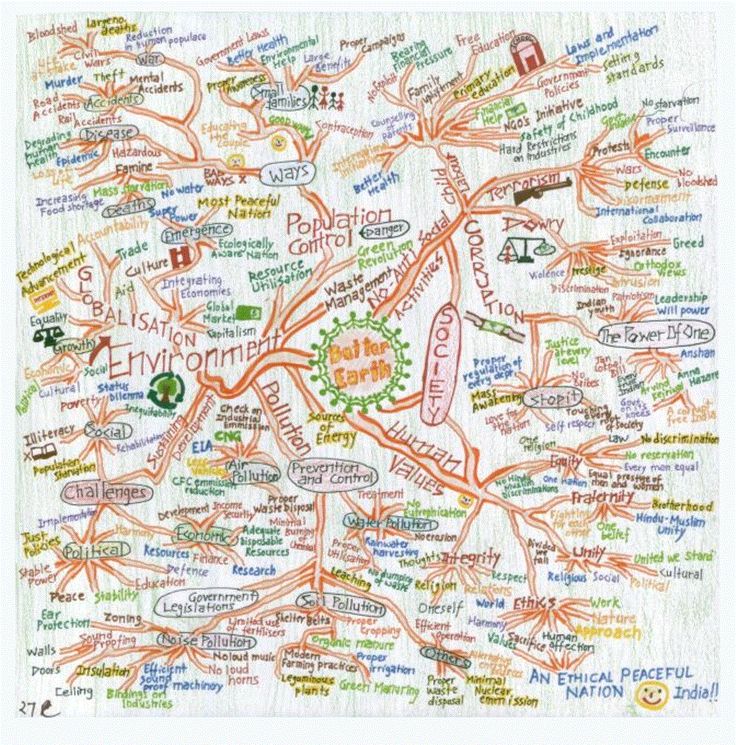 Better
Earth
Bloodshed
large no.
deaths
Reduction
in human populace
Civil
Wars
War
Murder
Theft
Mental
Accidents
Road
Accidents
Rail
Accidents
Accidents
Degrading
human
health
Disease
Epidemic
Hazardous
Loss of
Life
Famine
Mass starvation
No water
Increasing
Food shortage
Deaths
Government Laws
Better Health
Environmental
Help
Large
Benefits
Proper
Campaigns
Proper
Awareness
Small
families
Educating
the couple
GOOD WAYS
Contraception
BAD
WAYS X
Ways
Population
Control
Danger
Super
Power
Most Peaceful
Nation
Emergence
Ecologically
Aware Nation
Green
Revolution
Resource
Utilisation
Waste
Management
Technological
Advancement
Accountability
Trade
Culture
Aid
Integrating
Economies
Equality
GLOBALISATION
Global
Market
Capitalism
Growth
Economic
Social
Political
Cultural
Environment
Bearing
Financial
Pressure
Free
Education
SCHOOL
Laws and
Implementation
Setting
standards
Family
Upliftment
Primary education
Government
Policies
Financial
Help
Counselling
of parents
NGO's Initiative
Safety of Childhood
Hard Restrictions
on Industries
Better
Health
Child
labour
No-Anti Social
Activities
No starvation
Proper
Surveillance
Protests
Encounter
Terrorism
Wars
Defense
No
bloodshed
Disarmament
International
Collaboration
Dowry
Exploitation
Greed
Ignorance
Violence
Prestige
Orthodox
Views
Intrusion
Discrimination
Indian
youth
Patriotism
Leadership
Will power
The Power Of One
Anshan
Anna Hazare
Arvind
Kejriwal
Govt.
on its
knees
A corrupt
free India
CORRUPTION
SOCIETY
Proper
regulation of
every dept.
Justice
at every
level
Jan
Lokpal
Bill
No
Bribes
Mass
Awakening
Stop it
Love for
the nation
Self respect
Touching every
of Society
Status
dilemma
Poverty
Inequitability
Illiteracy
Social
Rehabilitation
Population
Starvation
Sustaining
Development
Challenges
Implementation
Just
Policies
Harmony
Political
Stable
Power
Peace
Stability
Education
Defence
Development
Income
Security
Economic
Adequate
Disposable
Resources
Resources
Finance
Research
Check on
Industrial
Emmission
CNG
EIA
Less
Vehicles
CFC emmission
reduction
Air
Pollution
Pollution
Prevention
and Control
Proper
Waste disposal
Minimal
Burning
of Chemical
Sources
of Energy
Treatment
No
Eutrophication
Water Pollution
No erosion
Proper
Utilisation
Rainwater
harvesting
No dumping
of waste
Leaching
Government
Legislations
Soil Pollution
Ear
Protection
Zoning
Sound
Proofing
Walls
Doors
Insulation
Ceiling
Noise Pollution
No loud music
No loud
horns
Efficient
sound
proof machinery
Bindings on
Industries
Limited use
of fertilisers
Shelter Belts
Proper
Cropping
Organic manure
Modern
Farming practices
Proper
irrigation
Leguminous
plants
Green Manuring
Oneself
Efficient
Operation
Others
Alternative
Proper
Waste
disposal
Minimal
Nuclear
emmission
Human
Values
One
religion
Law
No discrimination
Equity
No reservation
Every man equal
One nation
Equal prestige of
men and women
Fraternity
Brotherhood
Fighting for
each other
One
belief
Hindu-Muslim
Unity
Divided we
fall
Unity
United we Stand
Religious
Social
Cultural
Political
Thoughts
Integrity
Religion
Relations
Respect
World
Ethics
Work
Harmony
Nature
Values
Sacrifice
Human
affection
Approach
AN ETHICAL PEACEFUL
NATION
India!!
27